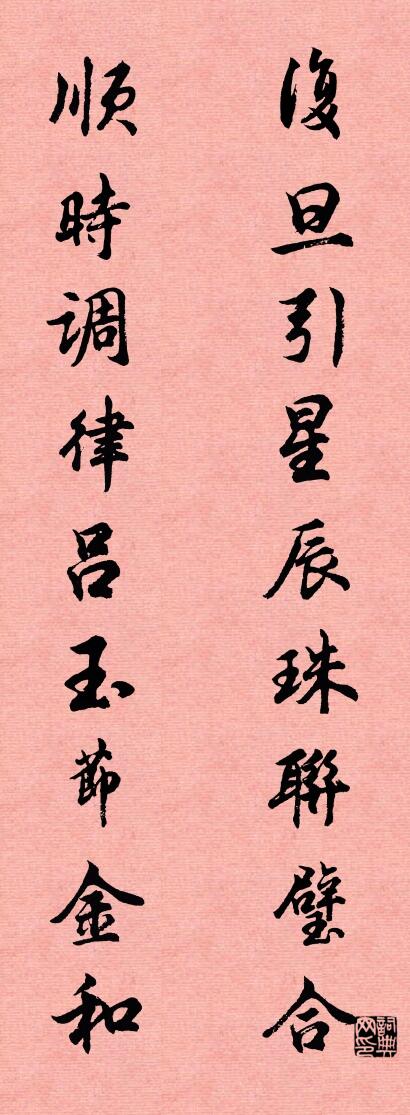 復旦引星辰珠聯璧合
順時調律呂玉節金和
詞典网印